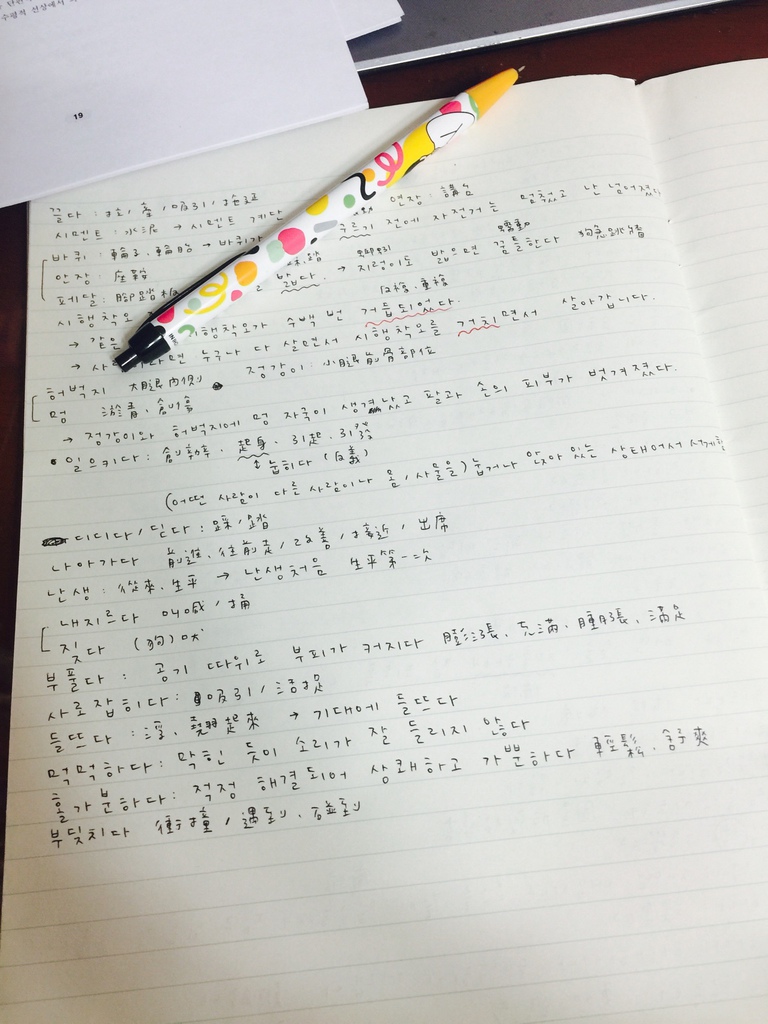 수평적 선상에서
19
끌다 : 拉, 牽, 吸引, 拖延
연장 : 講台
시멘트 : 水泥 → 시멘트 계단
누르기 전에 자전거는 멈췄고 난 넘어졌다
바퀴 : 車輪子, 車輪胎 → 바퀴가
안장 : 座鞍
밟다. → 지렁이도 밟으면 꿈틀한다 狗急跳牆
페달 : 腳踏板
反複, 重複
시행착오
→ 같은 시행착오가 수백 번 거듭되었다.
→ 사람이라면 누구나 다 살면서 시행착오를 거치면서 살아갑니다.
정강이 : 小腿前骨部位
허벅지 大腿內側
멍 瘀青, 創傷
→ 정강이와 허벅지에 멍 자국이 생겼고 팔과 손의 피부가 벗겨졌다.
• 일으키다 : 創辦, 起身, 引起, 引發
↕ 눕히다 (反義)
(어떤 사람이 다른 사람이나 몸, 사물을) 눕거나 앉아 있는 상태에서 서게 함
디디다 / 딛다 : 踩 / 踏
나아가다 前進, 往前走 / 改善 / 接近 / 出席
난생 : 從來, 生平 → 난생처음 生平第一次
내지르다 叫喊 / 捅
짖다 (狗) 吠
부풀다 : 공기 따위로 부피가 커지다 膨漲, 充滿, 腫脹, 滿足
사로잡히다 : 吸引 / 活捉
들뜨다 : 浮, 翹起來 → 기대에 들뜨다
먹먹하다 : 막힌 듯이 소리가 잘 들리지 않다
홀가분하다 : 걱정 해결되어 상쾌하고 가뿐하다 輕鬆, 舒爽
부딪치다 衝撞 / 遇到, 碰到